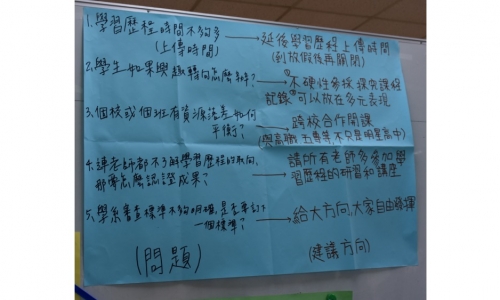 1.學習歷程時間不夠多 → 延後學習歷程上傳時間
(上傳時間) (到放假後再關閉)
2.學生如果興趣轉向怎麼辦? → ①不硬性参採探究課程
紀錄②可以放在多元表現
3.個校或個班有資源落差如何
平衡? → 跨校合作開課
(與高職、五專等,不只是明星高中)
4.課老師都不了解學習歷程的取向,
那要怎麼認證成果? → 請所有老師多參加學
習歷程的研習和講座
5.學系審查標準不夠明確,是否要訂下
一個標準? → 給大方向,大家自由發揮
(問題) (建議方向)